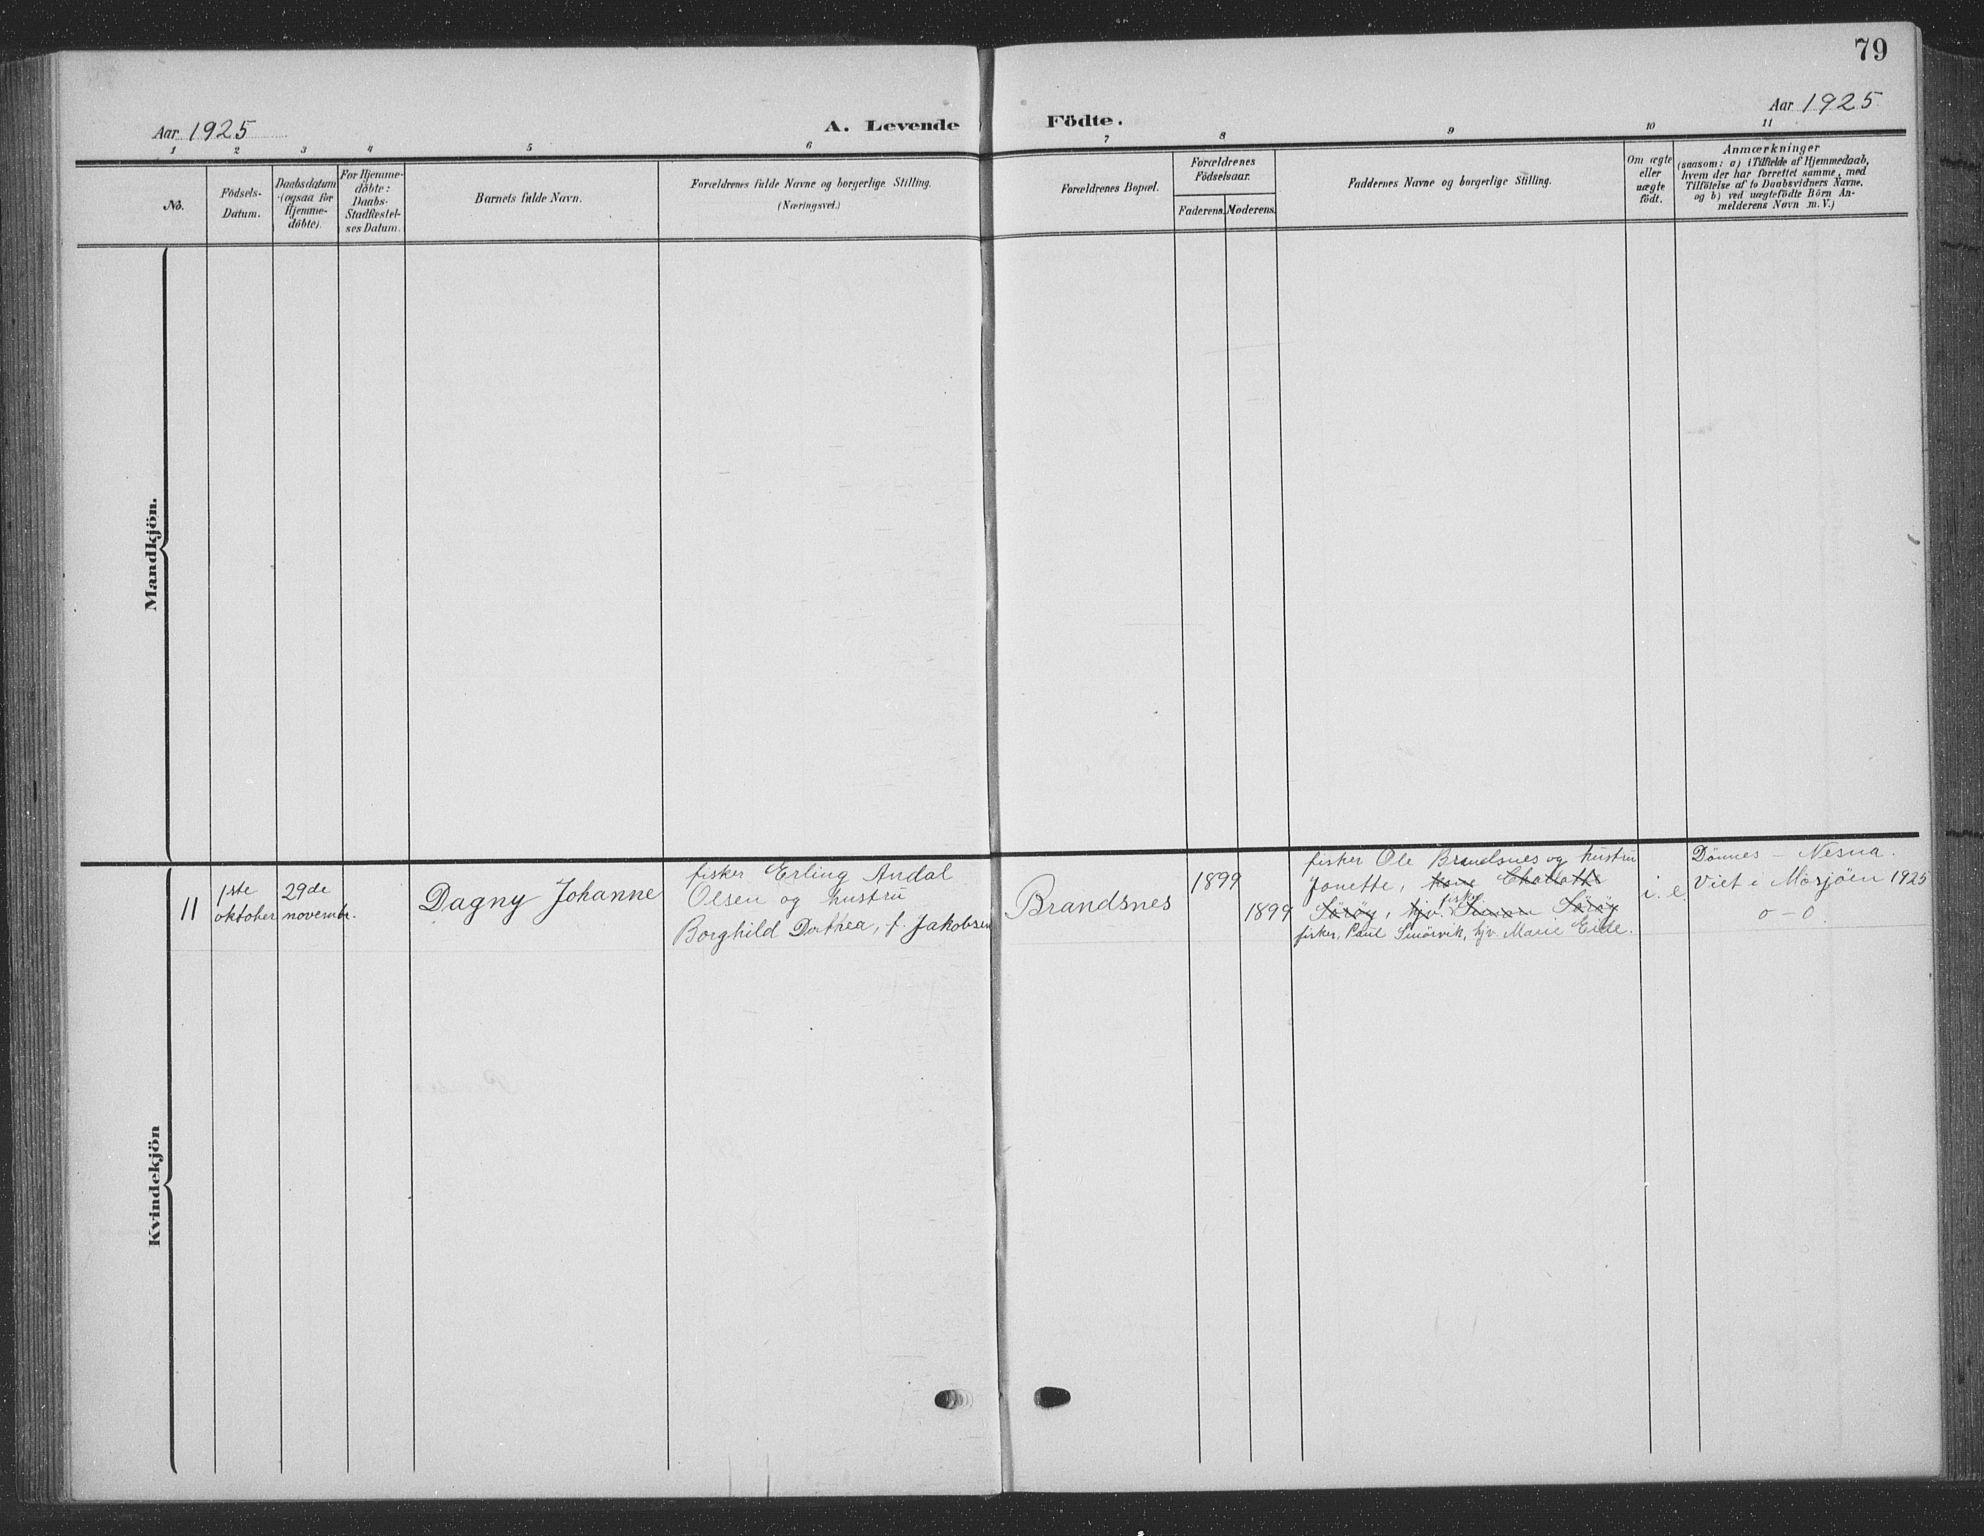 79
Aar 1925
A. Levende Födte.
Aar 1925
1 2 3 4 5 6 7 8 9 10 11
No.
Födsels-
Datum.
Daabsdatum
(ogsaa for
Hjemme-
döbte).
For Hjemme-
döbte:
Daabs-
Stadfestel-
ses Datum.
Barnets fulde Navn.
Forældrenes fulde Navne og borgerlige Stilling.
(Næringsvei.)
Forældrenes Bopæl.
Forældrenes
Födselsaar.
Faderens. Moderens.
Faddernes Navne og borgerlige Stilling.
Om ægte
eller
uægte
födt.
Anmærkninger
(saasom: a) i Tilfælde af Hjemmedaab,
hvem der har forrettet samme, med
Tilföielse af to Daabsvidners Navne.
og b) ved uægtefödte Börn An-
melderens Navn m. V.)
Mandkjön.
Kvindekjön
11
1ste
oktober
29de
novembr.
Dagny Johanne
fisker Erling Andal
Olsen og hustru
Borghild Dorthea, f. Jakobsen
Brandsnes
1899
1899
fisker Ole Brandsnes og hustru
Jonette, kone Charlotte
fisker
Sörøy, hjv. Simon Sörøy
fisker, Paul Smörvik, hjv. Marie Eide.
i. e.
Dönnes – Nesna.
Viet i Mosjöen 1925
o – o.